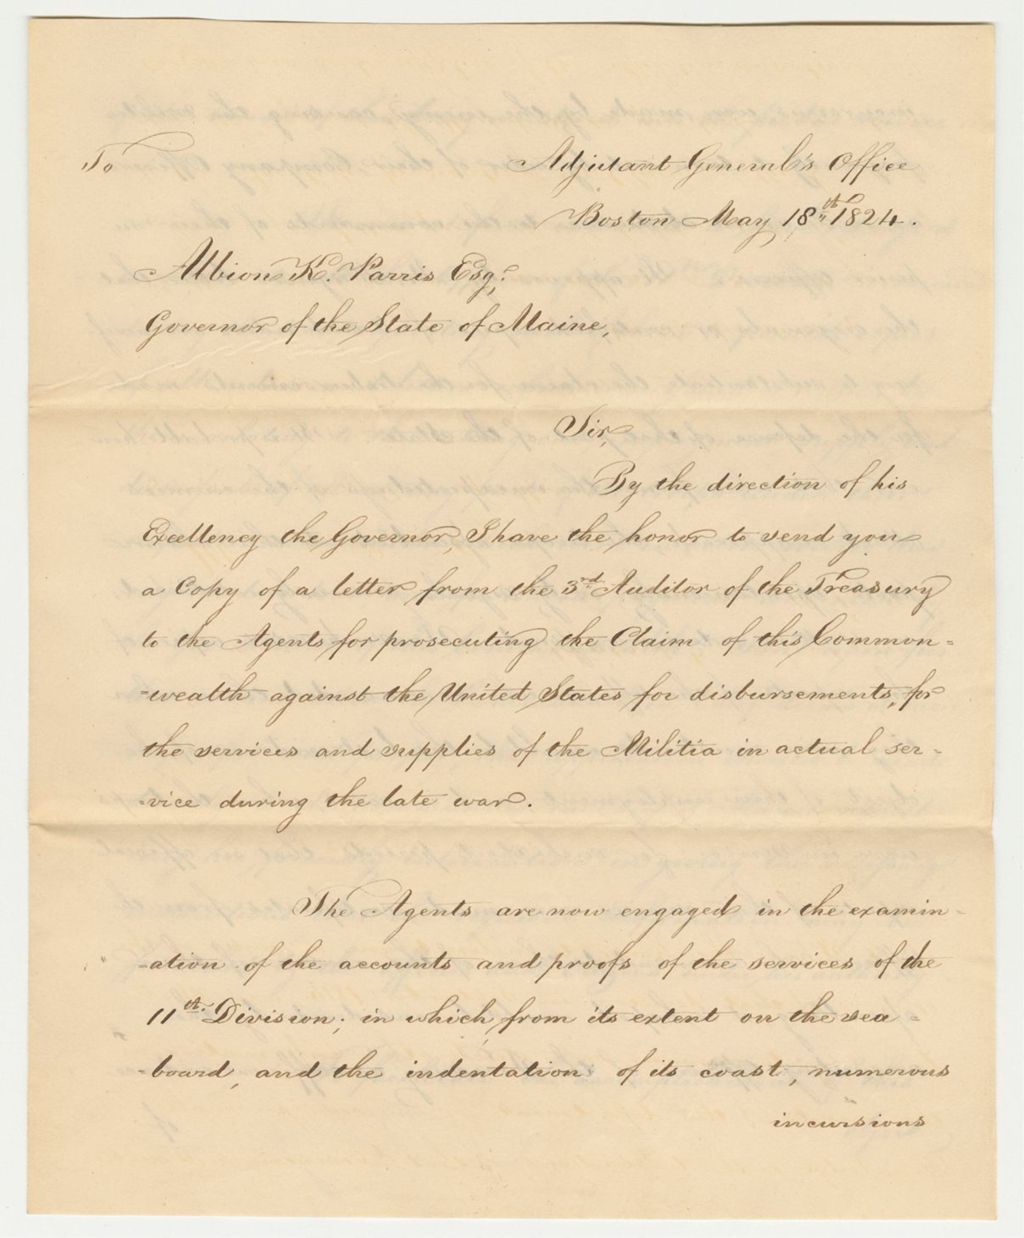 To
Adjutant General's Office
Boston May 18th 1824.
Albion K. Parris Esqr,
Governor of the State of Maine,
Sir,
By the direction of his
Excellency the Governor, I have the honor to send you
a Copy of a letter from the 3rd Auditor of the Treasury
to the Agents for prosecuting the Claim of this Common-
-wealth against the United States for disbursements, for
the services and supplies of the Militia in actual ser-
-vice during the late war.
The Agents are now engaged in the examin-
-ation of the accounts and proofs of the services of the
11th Division; in which, from its extent on the sea-
-board, and the indentation of its coast, numerous
incursions